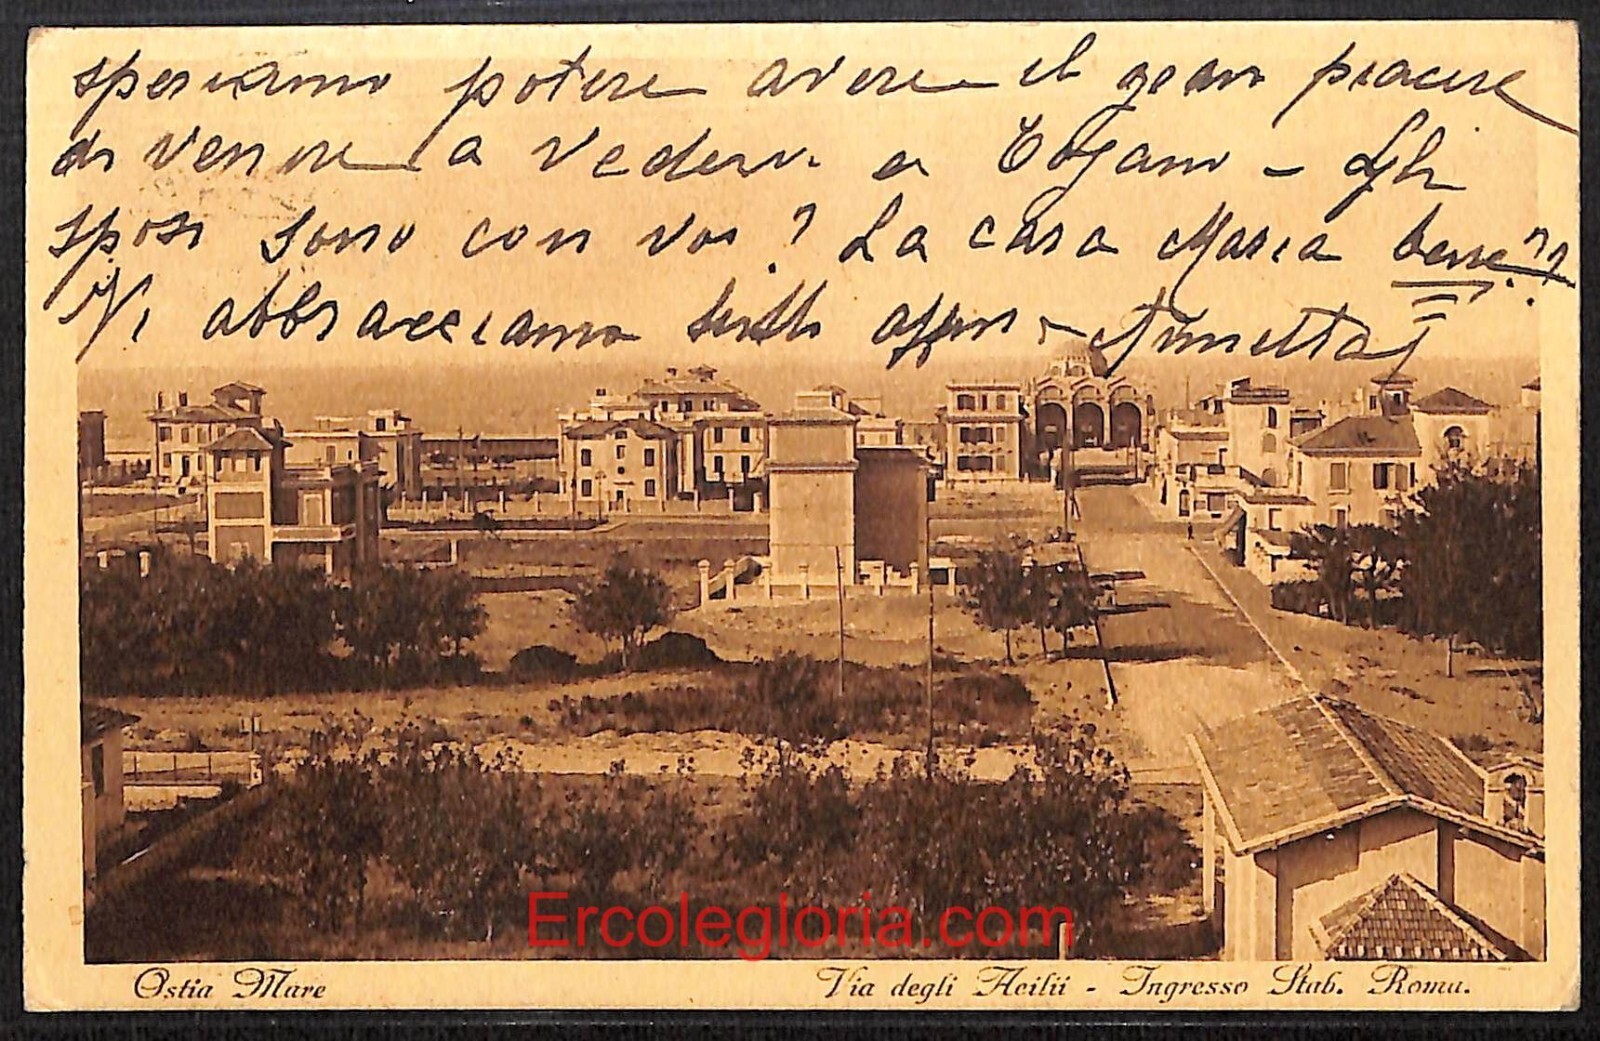 speriamo potere avere il gran piacere
di venire a vedervi a Cogano - Gli
sposi sono con voi? La cara Maria bene??
Vi abbracciamo tutti affmi - Annetta
Ercolegloria.com
Ostia Mare
Via degli Acilii - Ingresso Stab. Roma.